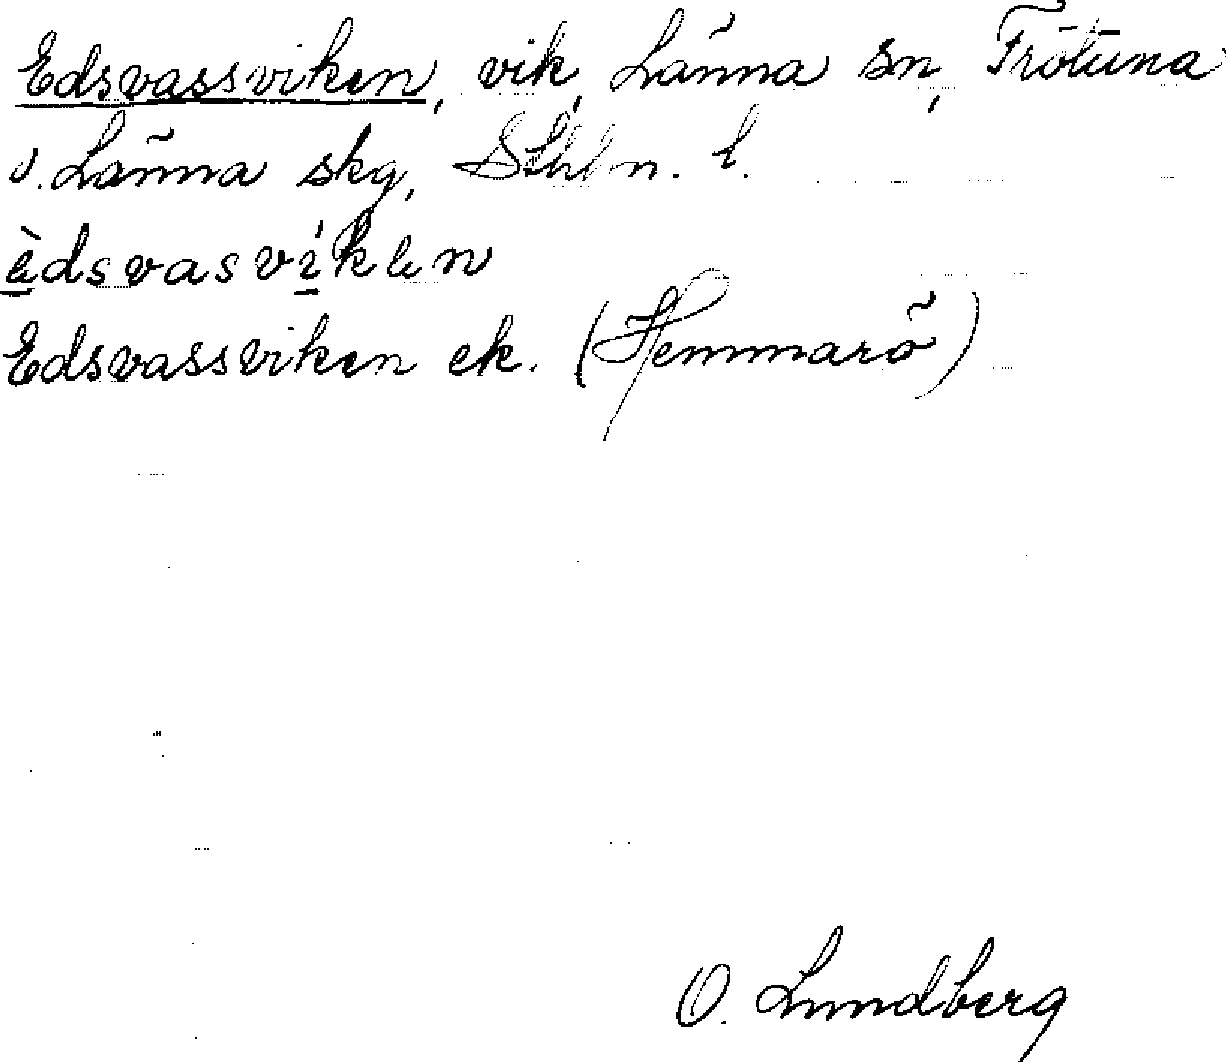 Edsvassviken, vik, Länna sn, Frötuna
o. Länna skg, Sthlm. l.
èdsvasvíken
Edsvassviken ek. (Hemmarö)
O. Lundberg